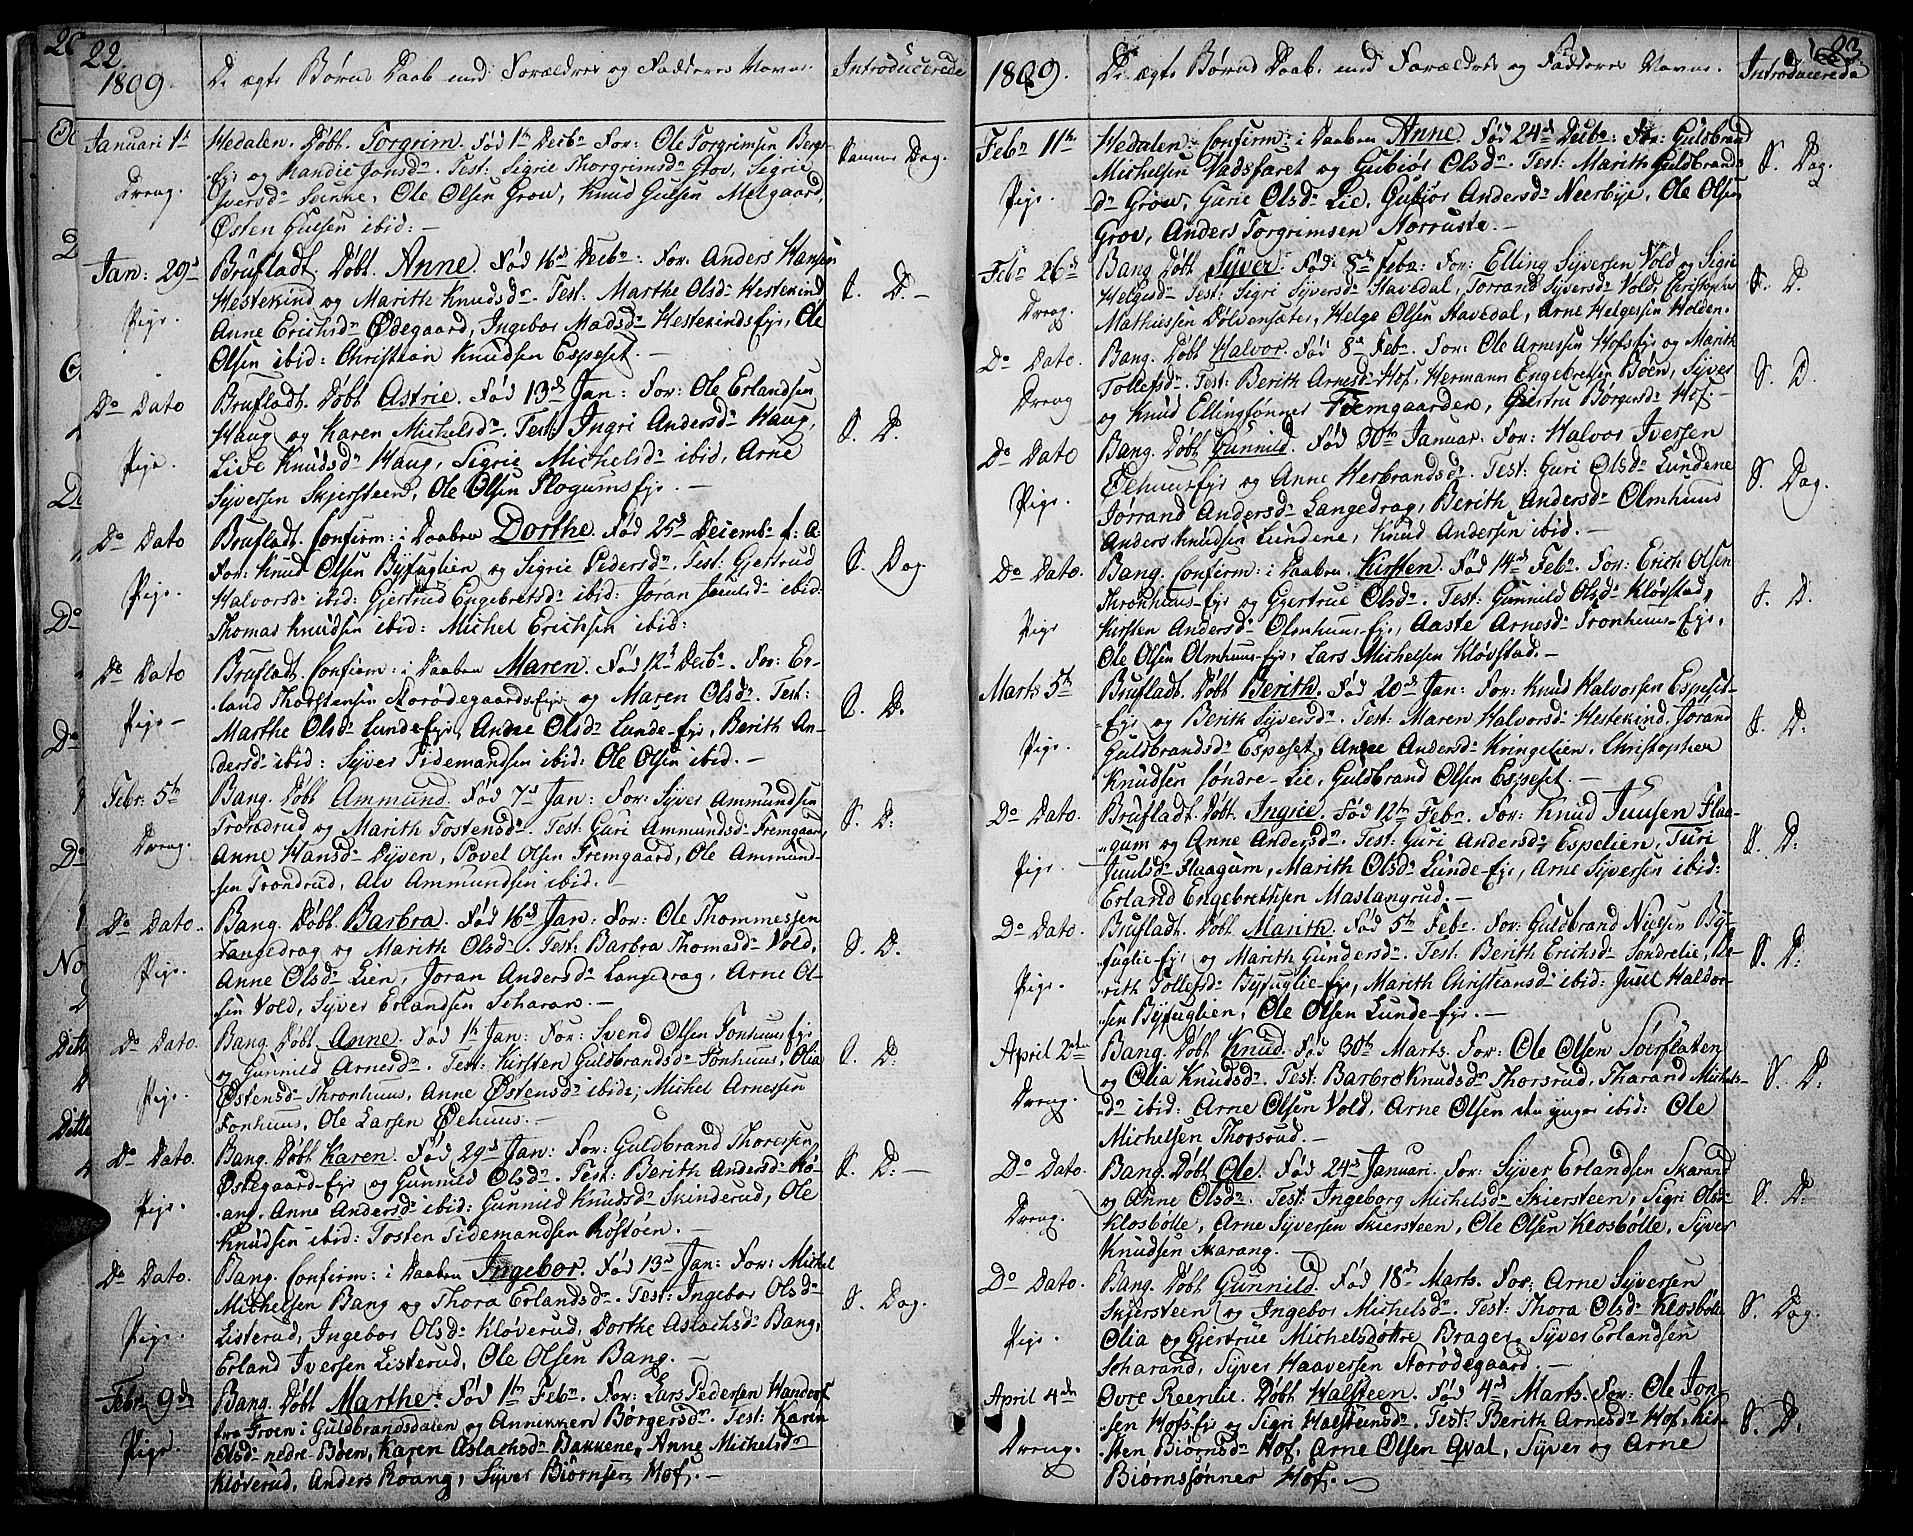 22.
1809. De ægte Børns Daab med Forældres og Fadderes Navne. Introducerede
Januari 1te Hedalen. Døbt Torgrim. Fød 1te Decbr. For: Ole Torgrimsen Berg-
Dreng. Ejr og Randie Jonsdr. Test: Sigrie Thorgrimsdr Grov, Sigrie Samme Dag.
Iversdr Leenne, Ole Olsen Grov, Knud Gulsen Melgaard,
Østen Gulsen ibid: —
Jan: 29d Brufladt. Døbt Anne. Fød 16d Decbr: For: Anders Hansen
Pige. Hestekind og Marith Knudsdr. Test: Marthe Olsdr Hestekind S. D. —
Anne Erichsdr Ødegaard, Ingebor Madsdr Hestekinds Ejr, Ole
Olsen ibid: Christian Knudsen Espeset. —
Do Dato Brufladt. Døbt Astrie. Fød 13d Jan: For: Ole Erlandsen
Pige. Haug og Karen Michelsdr. Test: Ingri Andersdr Haug, S. D.
Live Knudsdr Haug, Sigrie Michelsdr ibid, Arne
Syversen Skjersteen, Ole Olsen Flogums Ejr. —
Do Dato Brufladt. Confirm: i Daaben Dorthe. Fød 25d Decembr f: A
Pige. For: Knud Olsen Byfuglien og Sigrie Pedersdr. Test: Gjertrud S. Dag.
Halvorsdr ibid: Gjertrud Engebretsdr ibid: Jøran Juulsdr ibid:
Thomas Knudsen ibid: Michel Erichsen ibid:
Do Dato Brufladt. Confirm: i Daaben Maren. Fød 12d Decbr. For: Er-
Pige — land Thorstensen Storødegaards Ejr og Maren Olsdr. Test: S. D.
Marthe Olsdr Lunde-Ejr, Anne Olsdr Lunde-Ejr, Berith An-
dersdr ibid: Syver Tidemandsen ibid: Ole Olsen ibid. —
Febr: 5te Bang. Døbt Ammund. Fød 7d Jan: For: Syver Ammundsen
Dreng. Trondrud og Marith Tostensdr. Test: Guri Ammundsdr Fremgaard, S. D:
Anne Hansdr Dyven, Povel Olsen Fremgaard, Ole Ammund-
sen Trondrud, Alv Ammundsen ibid. —
Do Dato. Bang. Døbt Barbra. Fød 16d Jan: For: Ole Thommessen
Pige. Langedrag og Marith Olsdr. Test: Barbra Thomasdr Vold, S. D.
Anne Olsdr Lien, Joran Andersdr Langedrag, Arne Ol-
sen Vold, Syver Erlandsen Scharan. —
Do Dato. Bang. Døbt Anne. Fød 1te Jan: For: Svend Olsen Fonhuus Ejr
Pige. og Gunnild Arnesdr. Test: Kirsten Guldbrandsdr Fonhuus, Olia S. D:
Østensdr Thronhuus, Anne Østensdr ibid; Michel Arnessen
Fonhuus, Ole Larsen Øehuus. —
Do Dato. Bang. Døbt Karen. Fød 29d Jan: For: Guldbrand Thoressen
Pige. Østegaard-Ejr og Gunnild Olsdr. Test: Berith Andersdr Rø- S. D: —
ang. Anne Andersdr ibid: Gunnild Knudsdr Skinderud, Ole
Knudsen ibid: Tosten Tidemandsen Røstøen. —
Do Dato. Bang. Confirm: i Daaben Ingebor. Fød 13d Jan: For: Michel
Pige. Michelsen Bang og Thora Erlandsdr. Test: Ingebor Olsdr S. Dag.
Listerud, Ingebor Olsdr Kløverud, Dorthe Aslachsdr Bang,
Erland Iversen Listerud, Ole Olsen Bang. —
Febr. 9de Bang. Døbt Marthe. Fød 1te Febr. For: Lars Pedersen
Pige. fra Froen i Guldbrandsdalen og Annikken Børgersdr. Test: Karen
Olsdr nedre-Bøen, Karen Aslachsdr Bakkene, Anne Michelsdr
Kløverud, Anders Røang, Syver Biørnsen Hof. —
23.
1809. De ægte Børns Daab med Forældres og Fadderes Navne. Introducerede
Febr 11te Hedalen. Confirm: i Daaben Anne. Fød 24d Decbr: For: Guldbrand
Pige. Michelsen Vadsfaret og Gubiør Olsdr. Test: Marith Guldbrands- S. Dag.
dr Grov, Gurie Olsdr Lie, Gubiør Andersdr Neerbye, Ole Olsen
Grov, Anders Torgrimsen Storruste. —
Febr 26de Bang Døbt Syver. Fød: 8d Febr: For: Elling Syversen Vold og Sigri
Dreng. Helgesdr Test: Sigri Syversdr Stavedal, Jorrand Syversdr Vold, Christopher S. D.
Mathiessen Dølvensæter, Helge Olsen Stavedal, Arne Helgessen Holden.
Do Dato. Bang. Døbt Halvor. Fød 8d Febr. For: Ole Arnessen Hofs Ejr og Marith
Dreng Tollefsdr. Test: Berith Arnesdr Hof, Hermann Engebretsen Bøen, Syver S. D.
og Knud Ellingsønner Fremgaarden, Gjertru Børgersdr Hof. —
Do Dato Bang. Døbt Gunnild. Fød 30te Januar. For: Halvor Iversen
Pige. Øehuus Ejr og Anne Herbrandsdr. Test: Guri Olsdr Lundene S. Dag.
Jørrand Andersdr Langedrag, Berith Andersdr Olmhuus
Anders Knudsen Lundene, Knud Andersen ibid. —
Do Dato. Bang. Confirm: i Daaben. Kirsten. Fød 14d Febr. For: Erich Olsen
Pige Thronhuus-Ejr og Gjertrue Olsdr. Test: Gunnild Olsdr Kløvstad, S. D.
Kirsten Andersdr Olmhuus-Ejr, Aaste Arnesdr Tronhuus-Ejr,
Ole Olsen Olmhuus-Ejr, Lars Michelsen Kløvstad. —
Marts 5te Brufladt. Døbt Berith. Fød 20d Jan: For: Knud Halvorsen Espeset-
Pige. Ejr og Berith Syversdr. Test: Maren Halvorsdr Hestekind, Jorand S. D:
Guldbrandsdr Espeset, Anne Andersdr Kringelien, Christopher
Knudsen søndre-Lie, Guldbrand Olsen Espeset. —
Do Dato. Brufladt. Døbt. Ingrie. Fød 12te Febr. For: Knud Juulsen Flaa-
Pige. gum og Anne Andersdr. Test: Guri Andersdr Espelien, Turi S. D:
Juulsdr Flaagum, Marith Olsdr Lunde-Ejr, Arne Syversen ibid:
Erland Engebrethsen Maslangrud. —
Do Dato. Brufladt. Døbt Marith. Fød 5te Febr. For: Guldbrand Nielsen By-
Pige. fuglie-Ejr og Marith Gundersdr. Test: Berith Erichsdr Søndrelie, Be- S. D:
rith Tollefsdr Byfuglie-Ejr, Marith Christiansdr ibid: Juul Haldor-
sen Byfuglien, Ole Olsen Lunde-Ejr. —
April 2den Bang. Døbt Knud. Fød 30te Marts. For: Ole Olsen Sørflaten
Dreng. og Olia Knudsdr. Test: Barbro Knudsdr Thorsrud, Tharand Michels- S. D:
dr ibid: Arne Olsen Vold, Arne Olsen den yngre ibid: Ole
Michelsen Thorsrud. —
Do Dato. Bang. Døbt Ole. Fød 24d Januari. For: Syver Erlandsen Skarand
Dreng. og Anne Olsdr. Test: Ingeborg Michelsdr Skiersteen, Sigri Olsdr S. D:
Klosbølle, Arne Syversen Skiersteen, Ole Olsen Klosbølle, Syver
Knudsen Skarang. —
Do Dato. Bang. Døbt Gunnild. Fød 18de Marts. For: Arne Syversen
Pige. Skjersteen og Ingebor Michelsdr. Test: Thora Olsdr Klosbølle S. Dag.
Olia og Gjertrue Michelsdøttre Brager, Syver Erlandsen
Scharand, Syver Haaversen Storødegaard. —
April 4de Øvre Reenlie. Døbt Halsteen. Fød 4d Marts. For: Ole Jon-
Dreng. sen Hofs Ejr og Sigri Halsteensdr. Test: Berith Arnesdr Hof, Kir- S. D:
sten Biørnsdr Hof, Arne Olsen Qval, Syver og Arne
Biørnssønner Hof. —